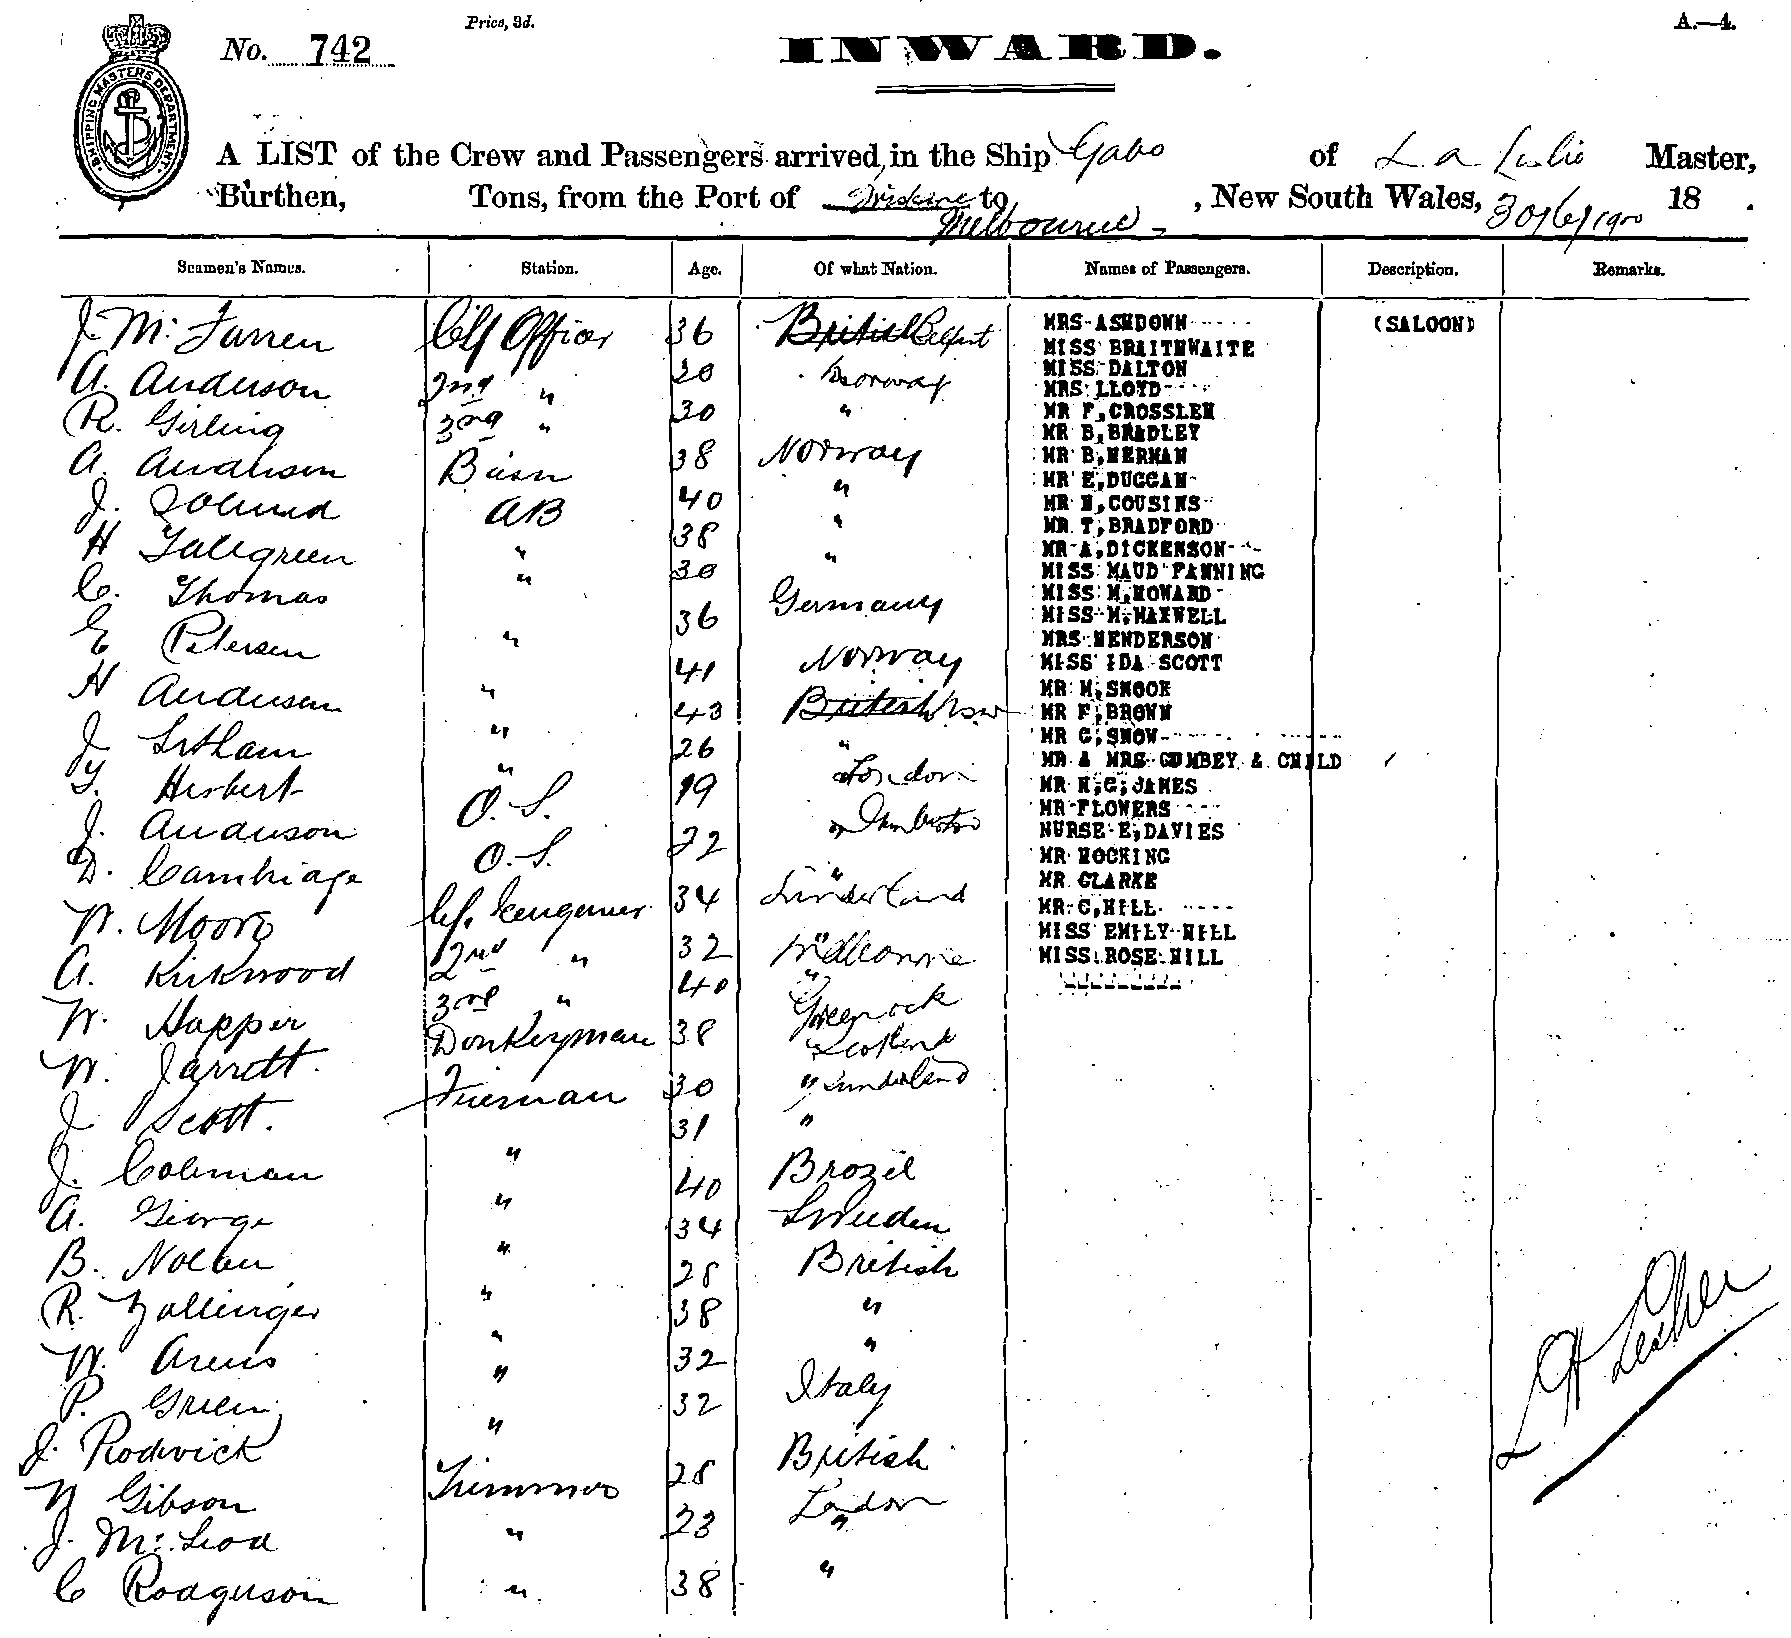 Price, 3d.
A.—4.
No. 742
INWARD.
SHIPPING MASTERS DEPARTMENT.
A LIST of the Crew and Passengers arrived in the Ship Gabo of L A Master,
Burthen, Tons, from the Port of to Melbourne , New South Wales, 30/6/1900 18 .
Seamen's Names. Station. Age. Of what Nation. Names of Passengers. Description. Remarks.
J. Mc Farren Cf Officer 36 British Belfast
A. Anderson 2nd " 30 Norway
R. Girling 3rd " 30 "
A. Anderson 38 Norway
J. AB 40 "
H " 38 "
C. Thomas " 30 "
E Petersen " 36 Germany
H Anderson " 41 Norway
J Latham " 43 British NSW
Herbert " 26 "
J. Anderson O. S. 19 London
D. Cambridge O. S. 22
W. Moore Cf. Engineer 34 Sunderland
A. Kirkwood 2nd " 32 "
W. Happer 3rd " 40 " Greenock
W. Jarrett. Donkeyman 38 Scotland
J Scott. Fireman 30 " Sunderland
J. Coleman " 31 "
A. George " 40 Brazil
B. Nolan " 34 Sweden
R. Zollinger " 28 British
W. Arens " 38 "
P. Green " 32 "
J. Rodwick " 32 Italy
Gibson Trimmer 28 British
J. Mc Leod " 23 London "
C Rodgerson " 38 "
MRS ASHDOWN (SALOON)
MISS BRAITHWAITE
MISS DALTON
MRS LLOYD
MR F, CROSSLEN
MR B, BRADLEY
MR B, HERMAN
MR E, DUGGAN
MR H, COUSINS
MR T, BRADFORD
MR A, DICKENSON
MISS MAUD FANNING
MISS M, HOWARD
MISS M. MAXWELL
MRS HENDERSON
MISS IDA SCOTT
MR H, SNOOK
MR F, BROWN
MR G, SNOW
MR & MRS GUMBEY & CHILD
MR H, G, JAMES
MR FLOWERS
NURSE E, DAVIES
MR HOCKING
MR CLARKE
MR C, HILL
MISS EMILY HILL
MISS ROSE HILL